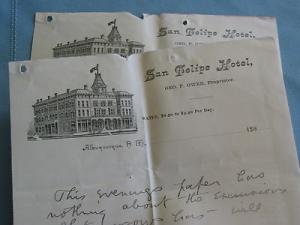 San Felipe Hotel,
GEO. F. OWEN,
San Felipe Hotel,
GEO. F. OWEN, Proprietor.
RATES, $2.50 to $3.50 Per Day.
Albuquerque, N. M.,
188
This evenings paper has
nothing about the
has will